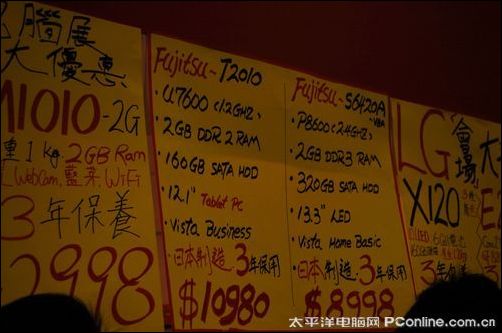 腦展
大優惠
M1010-2G
重1kg 2GB Ram
WebCam, 藍芽 WiFi
3年保養
2998
Fujitsu~T2010
·U7600 (1.2GHz)
·2GB DDR2 RAM
·160GB SATA HDD
·12.1" Tablet PC
·Vista Business
·日本制造 . 3年保用
$10980
Fujitsu~S6420A
·P8600 (2.4GHz)
·2GB DDR3 RAM
·320GB SATA HDD
·13.3" LED
·Vista Home Basic
·日本制造 . 3年保用
$8998
LG 會場
大
X120
3年
太平洋电脑网 PConline.com.cn